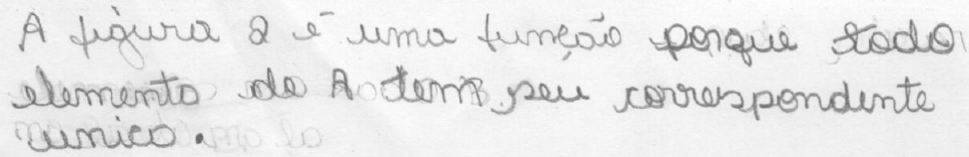 A figura 2 é uma função porque todo
elemento de A tem seu correspondente
unico.